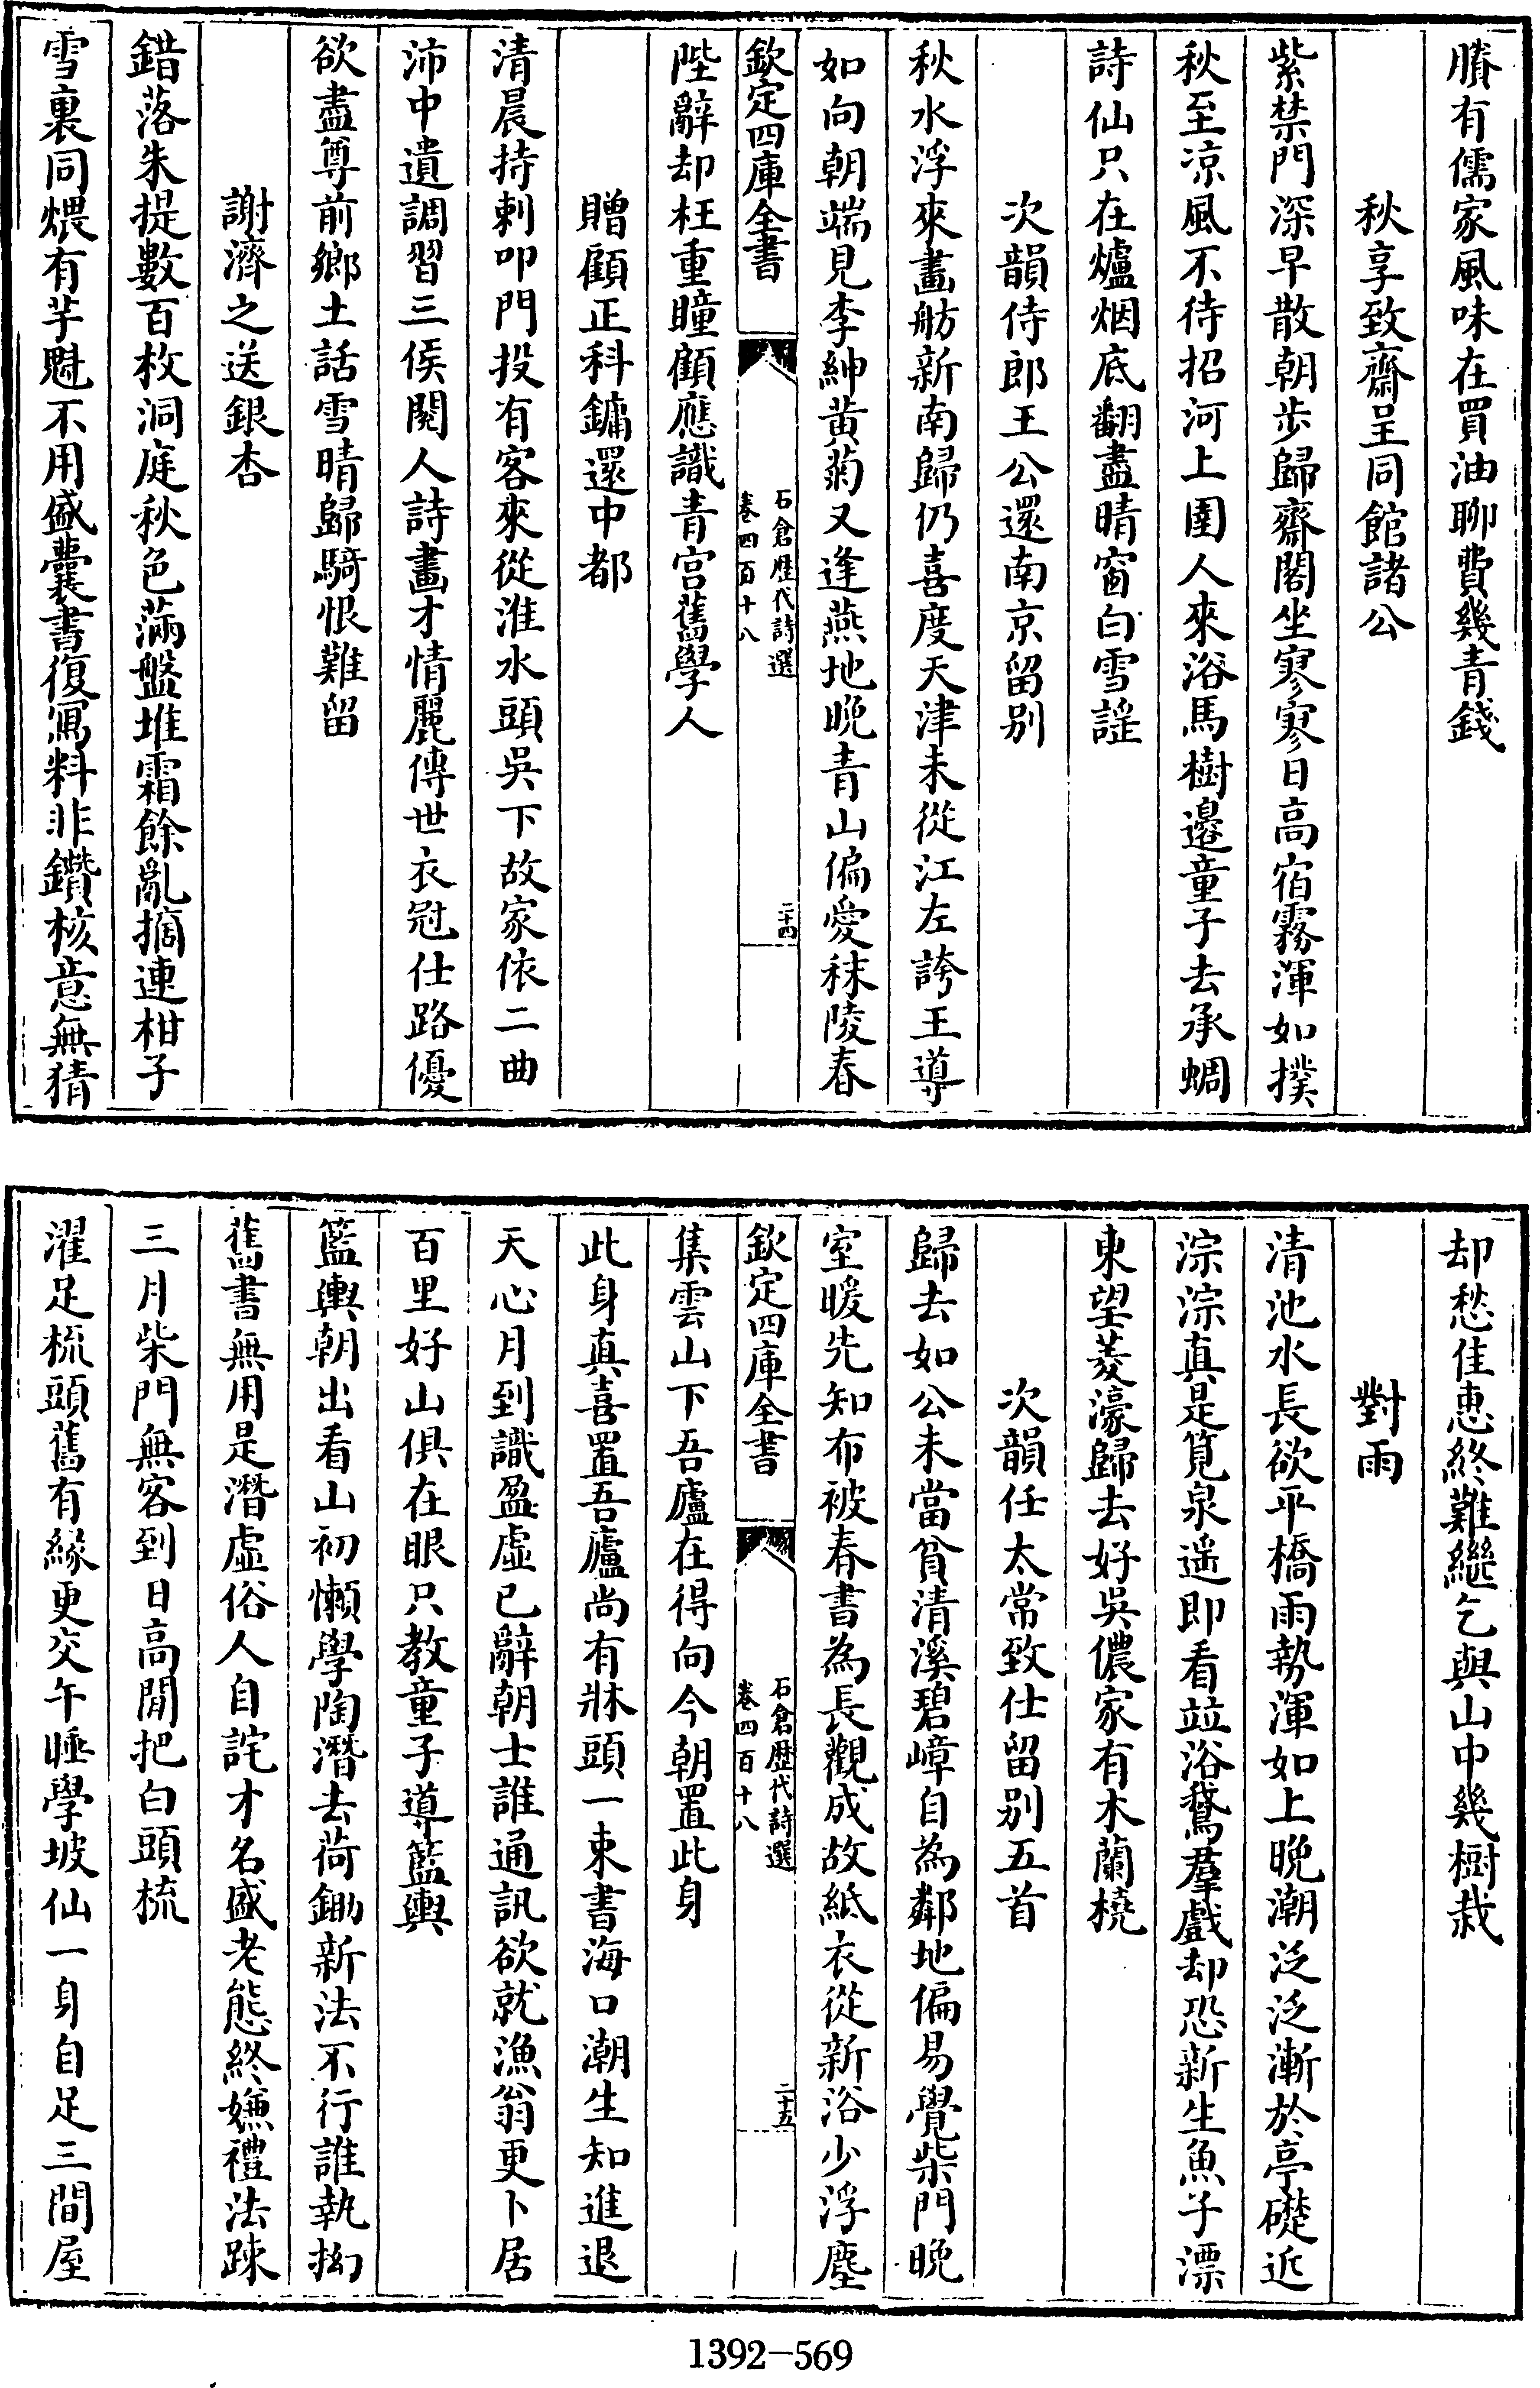 賸有儒家風味在買油聊費幾青錢
秋享致齋呈同館諸公
紫禁門深早散朝步歸齋閣坐寥寥日高宿霧渾如撲
秋至凉風不待招河上圉人來浴馬樹邊童子去承蜩
詩仙只在爐烟底翻盡晴窗白雪謡
次韻侍郎王公還南京留别
秋水浮來畫舫新南歸仍喜度天津未從江左誇王導
如向朝端見李紳黄菊又逢燕地晚青山偏愛秣陵春
欽定四庫全書
石倉歴代詩選
卷四百十八
二十四
陛辭却枉重瞳顧應識青宫舊學人
贈顧正科鏞還中都
清晨持刺叩門投有客來從淮水頭吳下故家依二曲
沛中遺調習三侯閱人詩畫才情麗傳世衣冠仕路優
欲盡尊前鄉土話雪晴歸騎恨難留
謝濟之送銀杏
錯落朱提數百枚洞庭秋色滿盤堆霜餘亂摘連柑子
雪裏同煨有芋魁不用盛囊書復寫料非鑽核意無猜
却愁佳惠終難繼乞與山中幾樹栽
對雨
清池水長欲平橋雨勢渾如上晚潮泛泛漸於亭礎近
淙淙真是筧泉遥即看竝浴鵞羣戲却恐新生魚子漂
東望菱濠歸去好吳儂家有木蘭橈
次韻任太常致仕留别五首
歸去如公未當貧清溪碧嶂自為鄰地偏易覺柴門晚
室暖先知布被春書為長觀成故紙衣從新浴少浮塵
欽定四庫全書
石倉歴代詩選
卷四百十八
二十五
集雲山下吾廬在得向今朝置此身
此身真喜置吾廬尚有牀頭一束書海口潮生知進退
天心月到識盈虛已辭朝士誰通訊欲就漁翁更卜居
百里好山俱在眼只教童子導籃輿
籃輿朝出看山初懶學陶潛去荷鋤新法不行誰執拗
舊書無用是潛虛俗人自詫才名盛老態終嫌禮法踈
三月柴門無客到日高閒把白頭梳
濯足梳頭舊有緣更交午睡學坡仙一身自足三間屋
1392-569